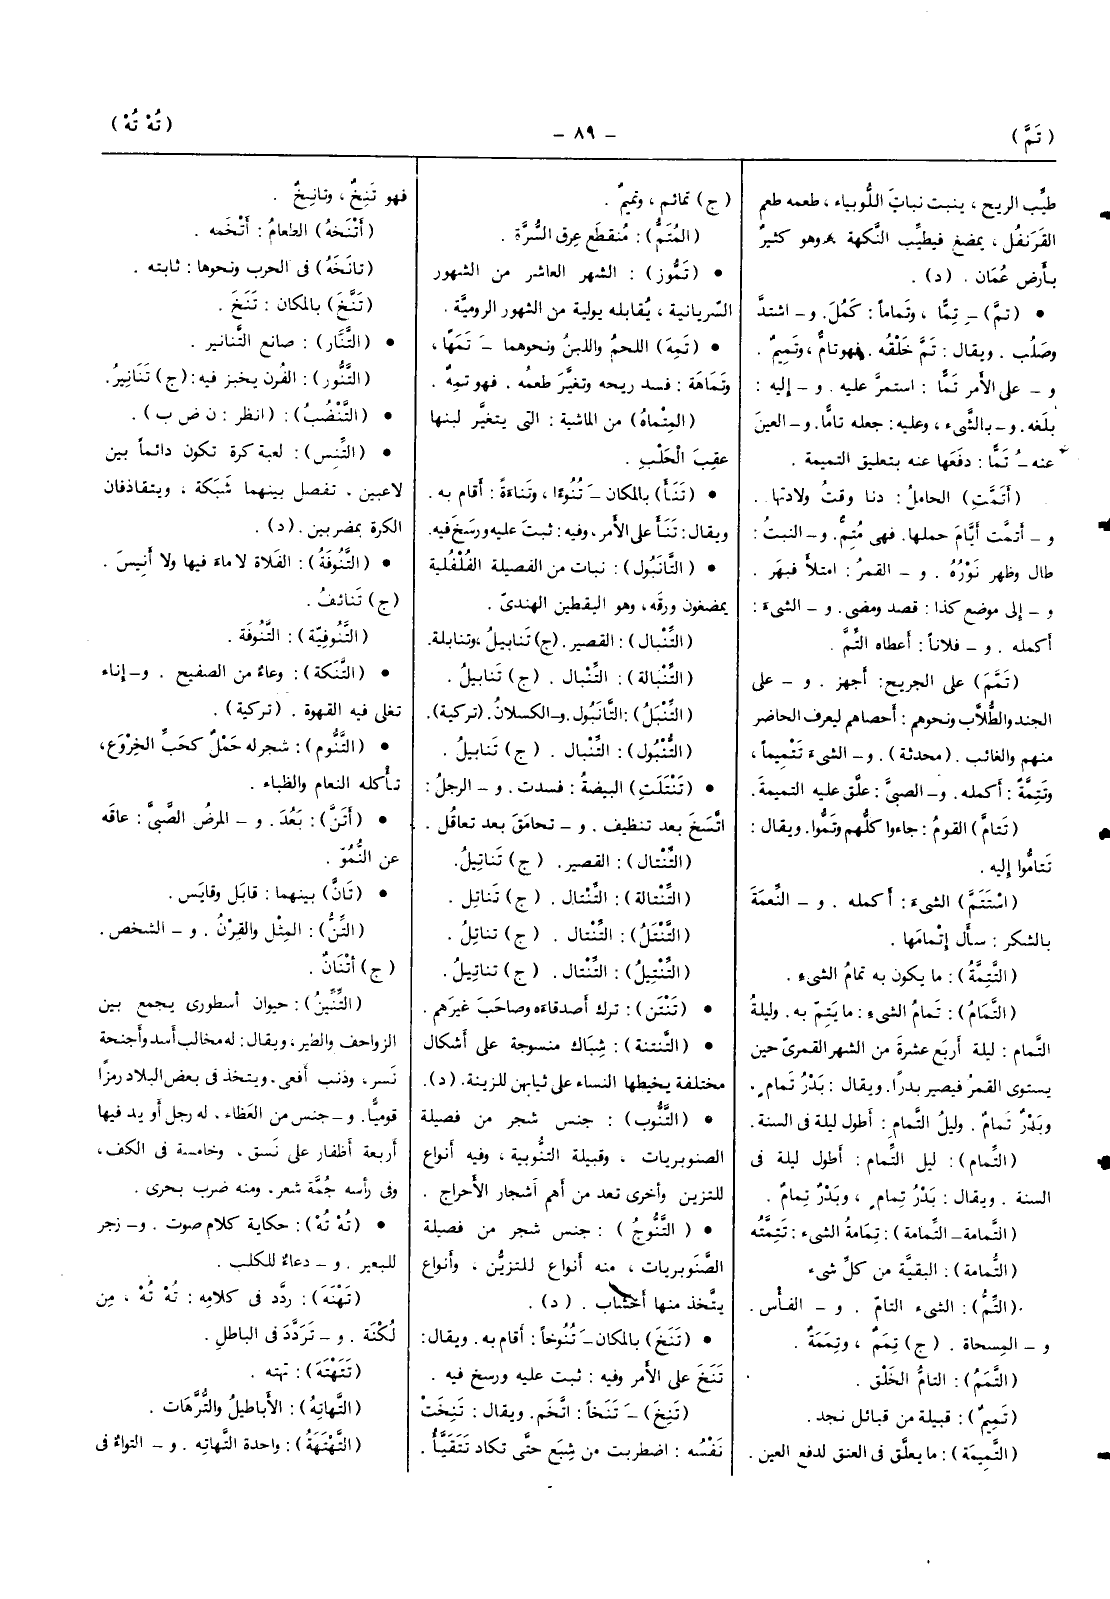 (تَمَّ)
– ٨٩ –
(تُهْ تُهْ)
طيِّب الريح ، ينبت نباتَ اللُّوبياء ، طعمه طعم
القَرَنفُل ، يمضغ فيطيِّب النَّكهة ، وهو كثيرٌ
بأرض عُمَان . (د) .
• (تمَّ) ـِ تِمًّا ، وتَماماً : كَمُلَ. و – اشتدَّ
وصَلُب . ويقال : تَمَّ خَلْقُه . فهو تامٌّ ، وتَمِيمٌ .
و – على الأمر تَمًّا : استمرَّ عليه . و – إليه :
بلَغه. و – بالشَّىء ، وعليه : جعله تامًّا. و – العينَ
عنه ـُ تَمًّا : دفَعَها عنه بتعليق التميمة .
(أَتَمَّتِ) الحاملُ : دنا وقتُ ولادتها .
و – أتمَّت أيَّامَ حملها. فهى مُتِمٌّ. و – النبتُ :
طال وظهر نَوْرُهُ . و – القمرُ : امتلأ فبهَر .
و – إلى موضع كذا : قصد ومضى. و – الشىءَ :
أكمله . و – فلاناً : أعطاه التِّمَّ .
(تَمَّمَ) على الجريح : أجهز . و – على
الجند والطُّلاَّب ونحوهم : أحصاهم ليعرف الحاضر
منهم والغائب . (محدثة) . و – الشىءَ تَتْمِيماً ،
وتَتِمَّةً : أكمله. و – الصبىَّ : علَّق عليه التميمة.
(تَتامَّ) القومُ : جاءوا كلُّهم وتَمُّوا. ويقال :
تَتامُّوا إليه .
(اسْتَتَمَّ) الشىءَ : أكمله . و – النِّعمَةَ
بالشكر : سأل إتْمامَها .
(التَّتِمَّةُ) : ما يكون به تمامُ الشىء .
(التَّمَامُ) : تَمامُ الشىء : ما يَتِمّ به. وليلةُ
التَّمام : ليلة أربعَ عشرةَ من الشهر القمرىّ حين
يستوى القمرُ فيصير بدرًا. ويقال : بَدْرُ تَمام ،
وبَدْرٌ تَمامٌ . وليلُ التَّمام : أطول ليلة فى السنة .
(التِّمام) : ليل التِّمام : أطول ليلة فى
السنة . ويقال : بَدْرُ تِمام ، وبَدْرٌ تِمامٌ .
(التَّمامة – التِّمامة) : تِمَامةُ الشىء : تَتِمَّتُه
(التُّمامة) : البقيَّة من كلِّ شىء
(التِّمُّ) : الشىء التامّ . و – الفأس .
و – المِسحاة . (ج) تِمَمٌ ، وتِمَمَةٌ .
(التَّمَمُ) : التامُّ الخَلْق .
(تَمِيمٌ) : قبيلة من قبائل نجد .
(التَّمِيمَة) : ما يعلَّق فى العنق لدفع العين .
(ج) تمائم ، وتَمِيمٌ .
(المُتَمُّ) : مُنقطَع عِرق السُّرَّة .
• (تَمُّوز) : الشهر العاشر من الشهور
السّريانية ، يُقابله يولية من الشهور الروميَّة .
• (تَمِهَ) اللحمُ واللبنُ ونحوهما ـَ تَمَهًا ،
وتَماهَة : فسد ريحه وتغيَّر طعمُه . فهو تمِهٌ .
(المِتْماهُ) من الماشية : التى يتغيَّر لبنها
عقِبَ الْحَلْبِ .
• (تَنَأَ) بالمكان ـَ تُنُوءًا ، وتَناءَةً : أقام به .
ويقال : تَنَأَ على الأمر ، وفيه : ثبتَ عليه ورسَخَ فيه.
• (التَّانَبُول) : نبات من الفصيلة الفُلْفُلية
يمضغون ورقَه ، وهو اليقطين الهندىّ .
(التِّنْبال) : القصير . (ج) تَنابِيلُ ، وتنابلة.
(التِّنْبالة) : التِّنْبال . (ج) تَنابيلُ .
(التِّنْبَلُ) : التَّانَبُول. و – الكسلانُ. (تركية).
(التُّنْبُول) : التِّنْبال . (ج) تَنابيلُ .
• (تَنْتَلَتِ) البيضةُ : فسدت . و – الرجلُ :
اتَّسَخَ بعد تنظيف . و – تحامَقَ بعد تعاقُل .
(التِّنْتال) : القصير. (ج) تَناتِيلُ.
(التِّنْتالة) : التِّنْتال . (ج) تَناتِل .
(التِّنْتَلُ) : التِّنْتال . (ج) تناتِلُ .
(التِّنْتِيلُ) : التِّنْتال . (ج) تناتِيلُ .
• (تَنْتَن) : ترك أصدقاءَه وصاحَبَ غيرَهم .
• (التَّنتنة) : شِبَاك منسوجة على أشكال
مختلفة يخيطها النساء على ثيابهن للزينة. (د).
• (التَّنُّوب) : جنس شجر من فصيلة
الصنوبريات ، وقبيلة التنُّوبية ، وفيه أنواع
للتزين وأخرى تعد من أهم أشجار الأحراج .
• (التَّنُّوجُ) : جنس شجر من فصيلة
الصَّنَوبريات ، منه أنواع للتزيُّن ، وأنواع
يتَّخذ منها أخشاب . (د) .
• (تَنَخَ) بالمكان ـَ تُنُوخاً : أقام به . ويقال :
تَنَخَ على الأمر وفيه : ثبت عليه ورسخ فيه .
(تَنِخَ) ـَ تَنَخاً : اتَّخم. ويقال : تَنِخَتْ
نَفْسُه : اضطربت من شِبَع حتَّى تكاد تَتَقَيَّأُ .
فهو تَنِخٌ ، وتانِخٌ .
(أَتْنَخهُ) الطعامُ : أتْخَمه .
(تانَخَهُ) فى الحرب ونحوها : ثابته .
(تَنَّخَ) بالمكان : تَنَخَ .
• (التَّنَّار) : صانع التَّنانير .
(التَّنُّور) : الفُرن يخبز فيه : (ج) تَنَانِيرُ.
• (التَّنْضُبُ) : (انظر : ن ض ب) .
• (التِّنِس) : لعبة كرة تكون دائماً بين
لاعبين . تفصل بينهما شَبَكة ، ويتقاذفان
الكرة بمضربين . (د) .
• (التَّنُوفَةُ) : الفَلاة لا ماءَ فيها ولا أنِيسَ .
(ج) تَنائفُ .
(التَّنُوفِيّة) : التَّنُوفَة .
• (التَّنَكة) : وعاءٌ من الصفيح . و – إناء
تغلى فيه القهوة . (تركية) .
• (التَّنُّوم) : شجر له حَمْلٌ كحَبِّ الخِرْوَع،
تأكله النعام والظباء .
• (أَتَنَّ) : بَعُدَ . و – المرضُ الصَّبىَّ : عاقه
عن النُّمُوّ .
• (تَانَّ) بينهما : قابَل وقايَس .
(التِّنُّ) : المِثْل والقِرْنُ . و – الشخص .
(ج) أتْنَانٌ .
(التِّنِّينُ) : حيوان أسطورى يجمع بين
الزواحف والطير ، ويقال : له مخالب أسد وأجنحة
نَسر ، وذنب أفعى . ويتخذ فى بعض البلاد رمزًا
قوميًّا. و – جنس من العَظاء ، له رجل أو يد فيها
أربعة أظفار على نَسق ، وخامسة فى الكف ،
وفى رأسه جُمَّة شعر ، ومنه ضرب بحرى .
• (تُهْ تُهْ) : حكاية كلام صوت . و – زجر
للبعير . و – دعاءٌ للكلب .
(تَهْتَهَ) : ردَّد فى كلامِه : تُهْ تُهْ ، مِن
لُكْنَة . و – تَرَدَّدَ فى الباطل .
(تَتَهْتَهَ) : تهته .
(التَّهاتِهُ) : الأباطيلُ والتُّرَّهات .
(التَّهْتَهَةُ) : واحدة التَّهاتِه . و – التواءٌ فى